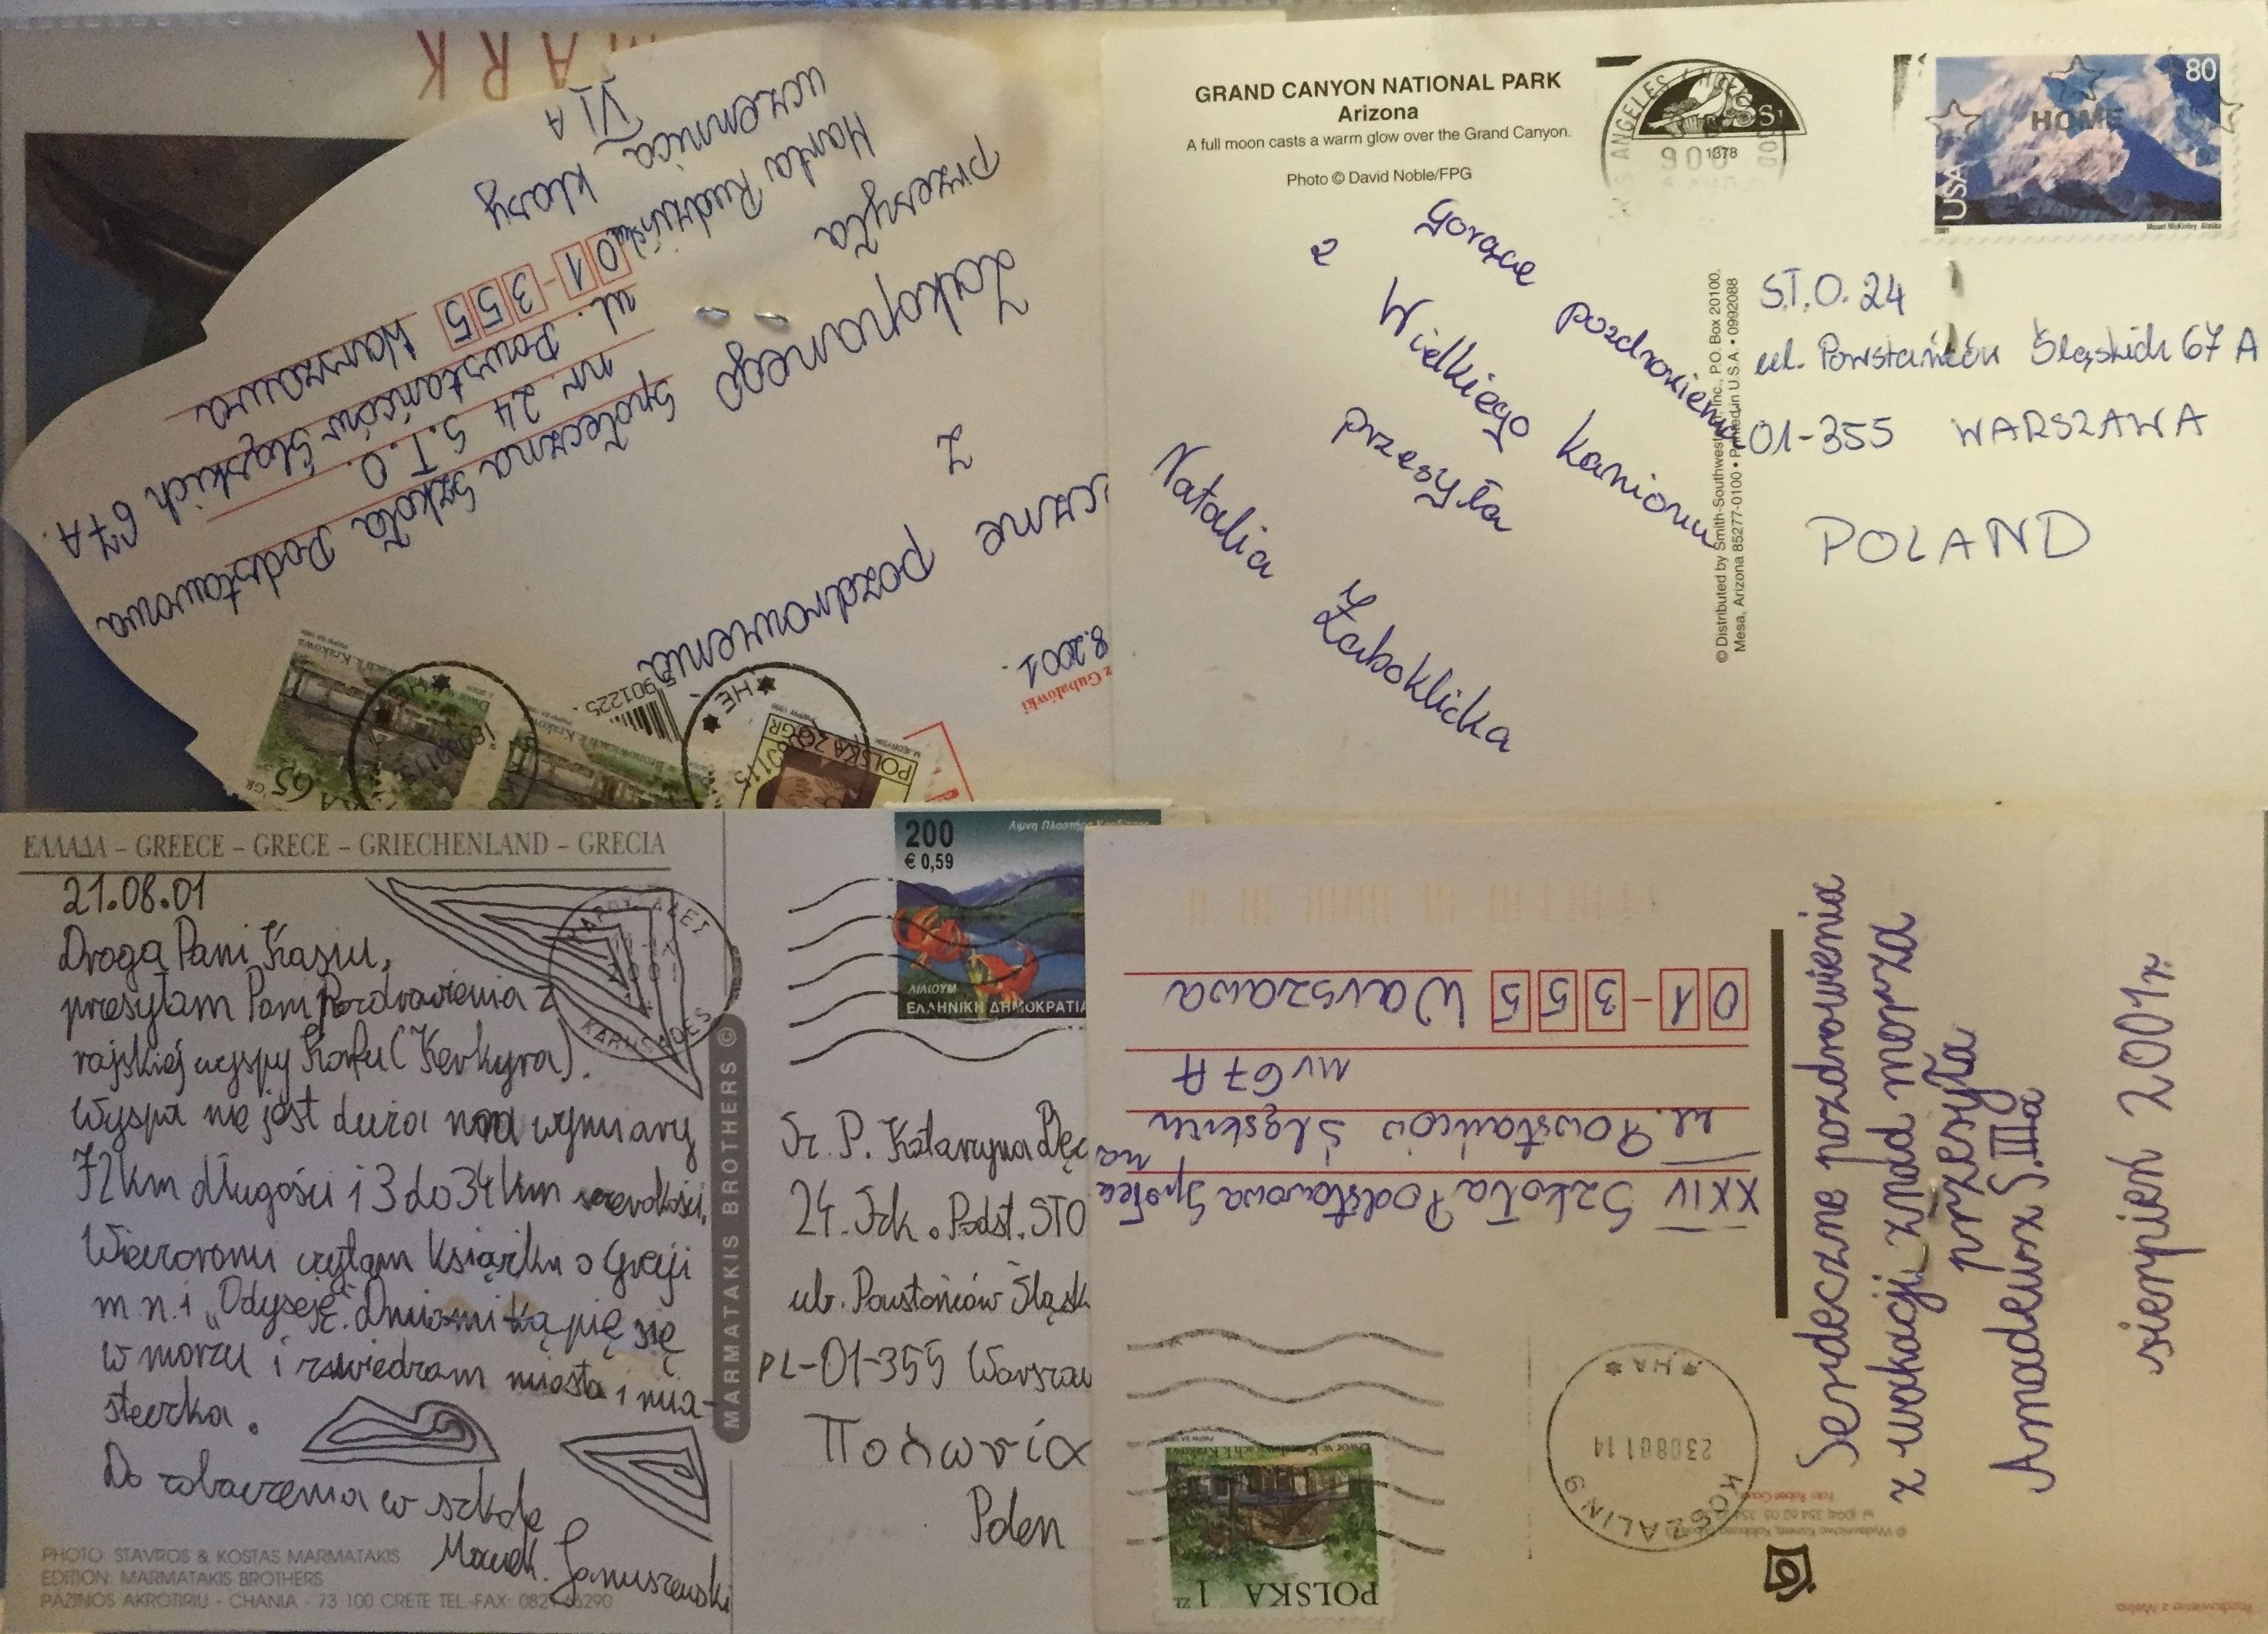 MARK
Społeczna Szkoła Podstawowa
nr. 24 S.T.O.
ul. Powstańców Śląskich 67A.
01-355 Warszawa
8.2001.
z Gubałówki
pozdrowienia
z
Zakopanego
przesyła
Marta
uczennica klasy
VI A
901225
POLSKA ZŁ
GRAND CANYON NATIONAL PARK
Arizona
A full moon casts a warm glow over the Grand Canyon.
Photo © David Noble/FPG
80
HOME
USA
2001
Mount McKinley, Alaska
1378
Gorące pozdrowienia
z Wielkiego Kanionu
przesyła
Natalia Żaboklicka
© Distributed by Smith-Southwestern, Inc., P.O. Box 20100,
Mesa, Arizona 85277-0100 • Printed in U.S.A. • 0992088
S.T.O. 24
ul. Powstańców Śląskich 67 A
01-355 WARSZAWA
POLAND
ΕΛΛΑΔΑ – GREECE – GRECE – GRIECHENLAND – GRECIA
21.08.01
Droga Pani Kasiu,
presyłam Pani Pozdrowienia z
rajskiej wyspy Korfu (Kerkyra).
Wyspa nie jest duża ma wymiary
72km długości i 3 do 34 km szerokości.
Wieczorami czytam książki o Grecji
m.n.i „Odyseję”. Dniami kąpię się
w morzu i zwiedzam miasta i mia-
steczka.
Do zobaczenia w szkole
Marek. Januszewski
PHOTO: STAVROS & KOSTAS MARMATAKIS
EDITION: MARMATAKIS BROTHERS
PAZINOS AKROTIRIU - CHANIA - 73 100 CRETE TEL.-FAX:
MARMATAKIS BROTHERS ©
KARUSADES
200
€ 0,59
Λίμνη Πλαστήρα
ΛΙΛΙΟΥΜ
ΕΛΛΗΝΙΚΗ ΔΗΜΟΚΡΑΤΙΑ
Sz. P. Katarzyna
24. Szk. Podst. STO
ul. Powstańców Śląsk
PL-01-355 Warszaw
Πολωνία
Polen
XXIV Szkoła Podstawowa Społecz
na
ul. Powstańców Śląskich
nr 67 A
01-355 Warszawa
Serdeczne pozdrowienia
z wakacji znad morza
przesyła
Amadeusz S. IIIa
sierpień 2001r.
KOSZALIN 9
230801 14
*HA*
POLSKA 1 ZŁ
Pozdrowienia z Mielna